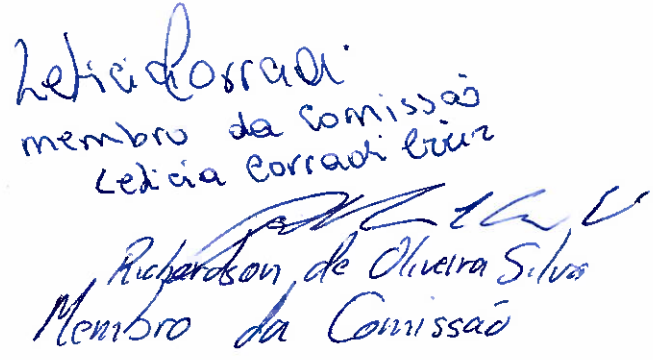 Leticia Corradi
membro da Comissão
Leticia Corradi Cruz
Richardson de Oliveira Silva
Membro da Comissão